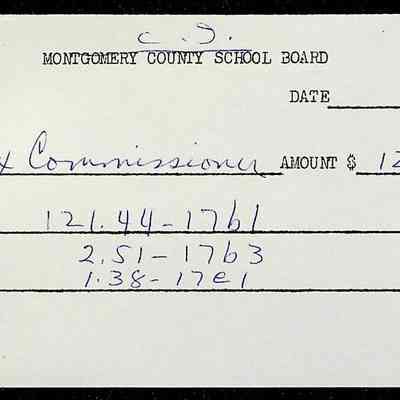 C. S.
MONTGOMERY COUNTY SCHOOL BOARD
DATE
x Commissioner AMOUNT $ 12
121.44-17b1
2.51-17b3
1.38-17e1